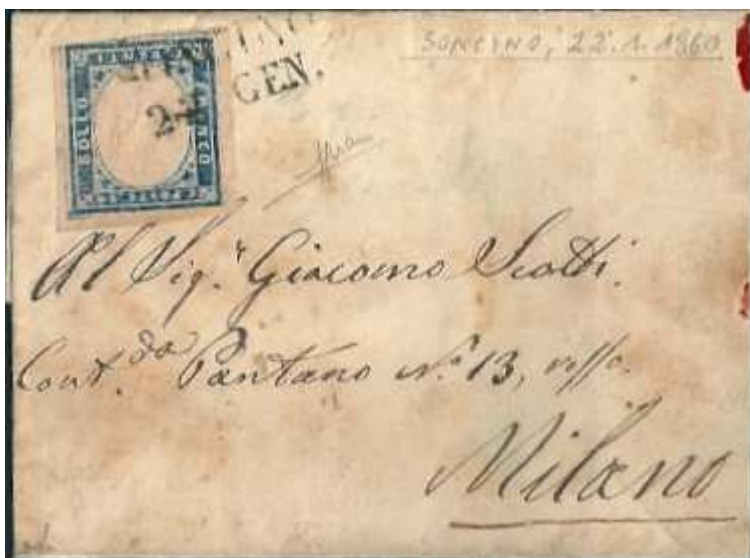 SONCINO, 22.1.1860
GEN.
BOLLO
FRANCO
Al Sig.r Giacomo Scotti.
Cont.da Pantano N.o 13, rosso.
Milano